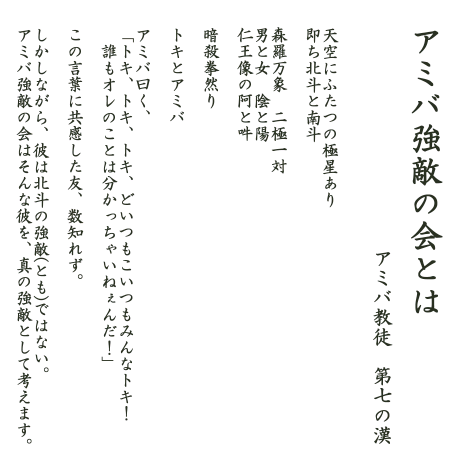 アミバ強敵の会とは
アミバ教徒　第七の漢
天空にふたつの極星あり
即ち北斗と南斗
森羅万象　二極一対
男と女　陰と陽
仁王像の阿と吽
暗殺拳然り
トキとアミバ
アミバ曰く、
「トキ、トキ、トキ、どいつもこいつもみんなトキ！
誰もオレのことは分かっちゃいねぇんだ！」
この言葉に共感した友、数知れず。
しかしながら、彼は北斗の強敵(とも)ではない。
アミバ強敵の会はそんな彼を、真の強敵として考えます。